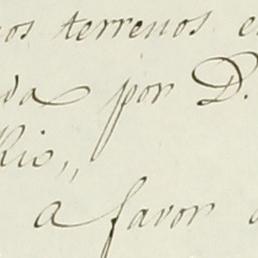 nos terrenos e
da por D.
Rio,,
a favor